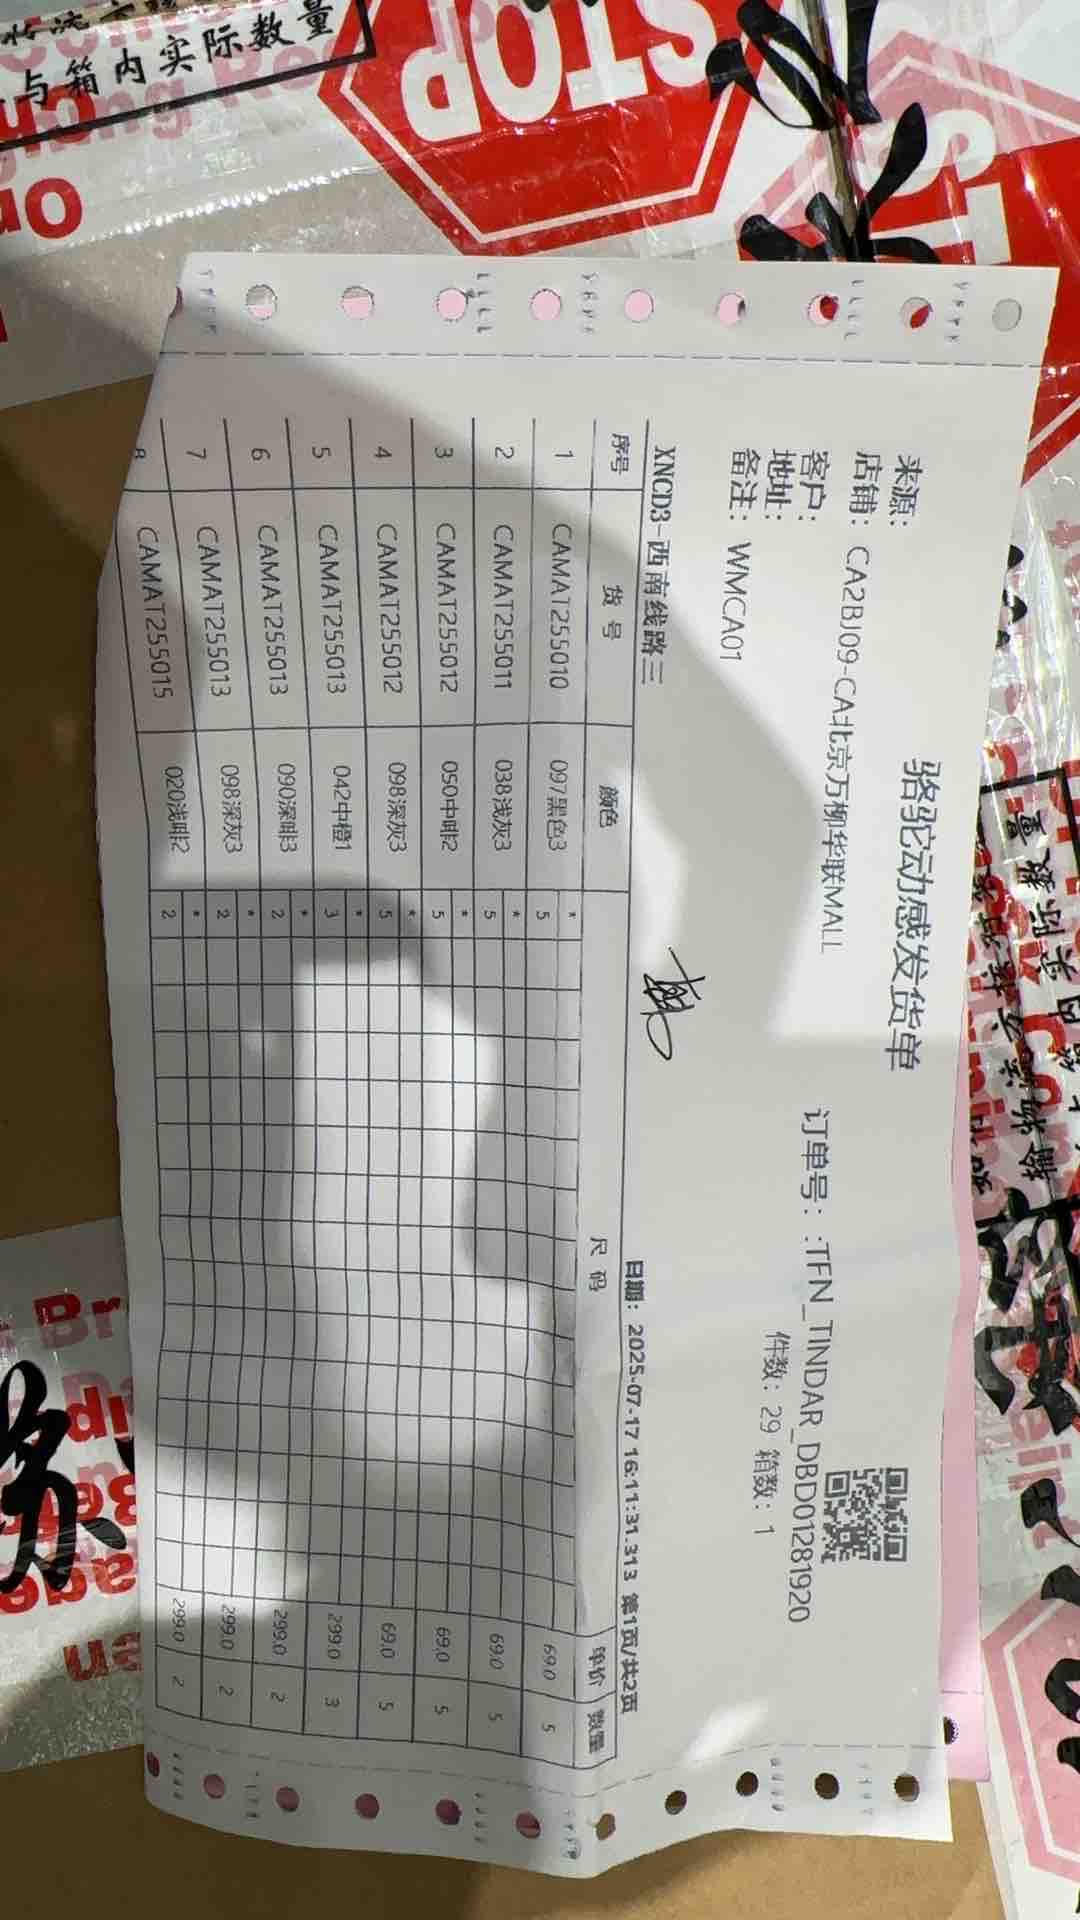 与箱内实际数量
STOP
骆驼动感发货单
来源:
店铺: CA2BJ09-CA北京万柳华联MALL
订单号: :TFN_TINDAR_DBD01281920
客户:
件数: 29 箱数: 1
地址:
备注: WMCA01
XNCD3-西南线路三 日期: 2025-07-17 16:11:31.313 第1页/共2页
序号 货号 颜色 尺码 单价 数量
*
1 CAMAT255010 097黑色3 5 69.0 5
*
2 CAMAT255011 038浅灰3 5 69.0 5
*
3 CAMAT255012 050中啡2 5 69.0 5
*
4 CAMAT255012 098深灰3 5 69.0 5
*
5 CAMAT255013 042中橙1 3 299.0 3
*
6 CAMAT255013 090深啡3 2 299.0 2
*
7 CAMAT255013 098深灰3 2 299.0 2
*
8 CAMAT255015 020浅啡2 2 299.0 2